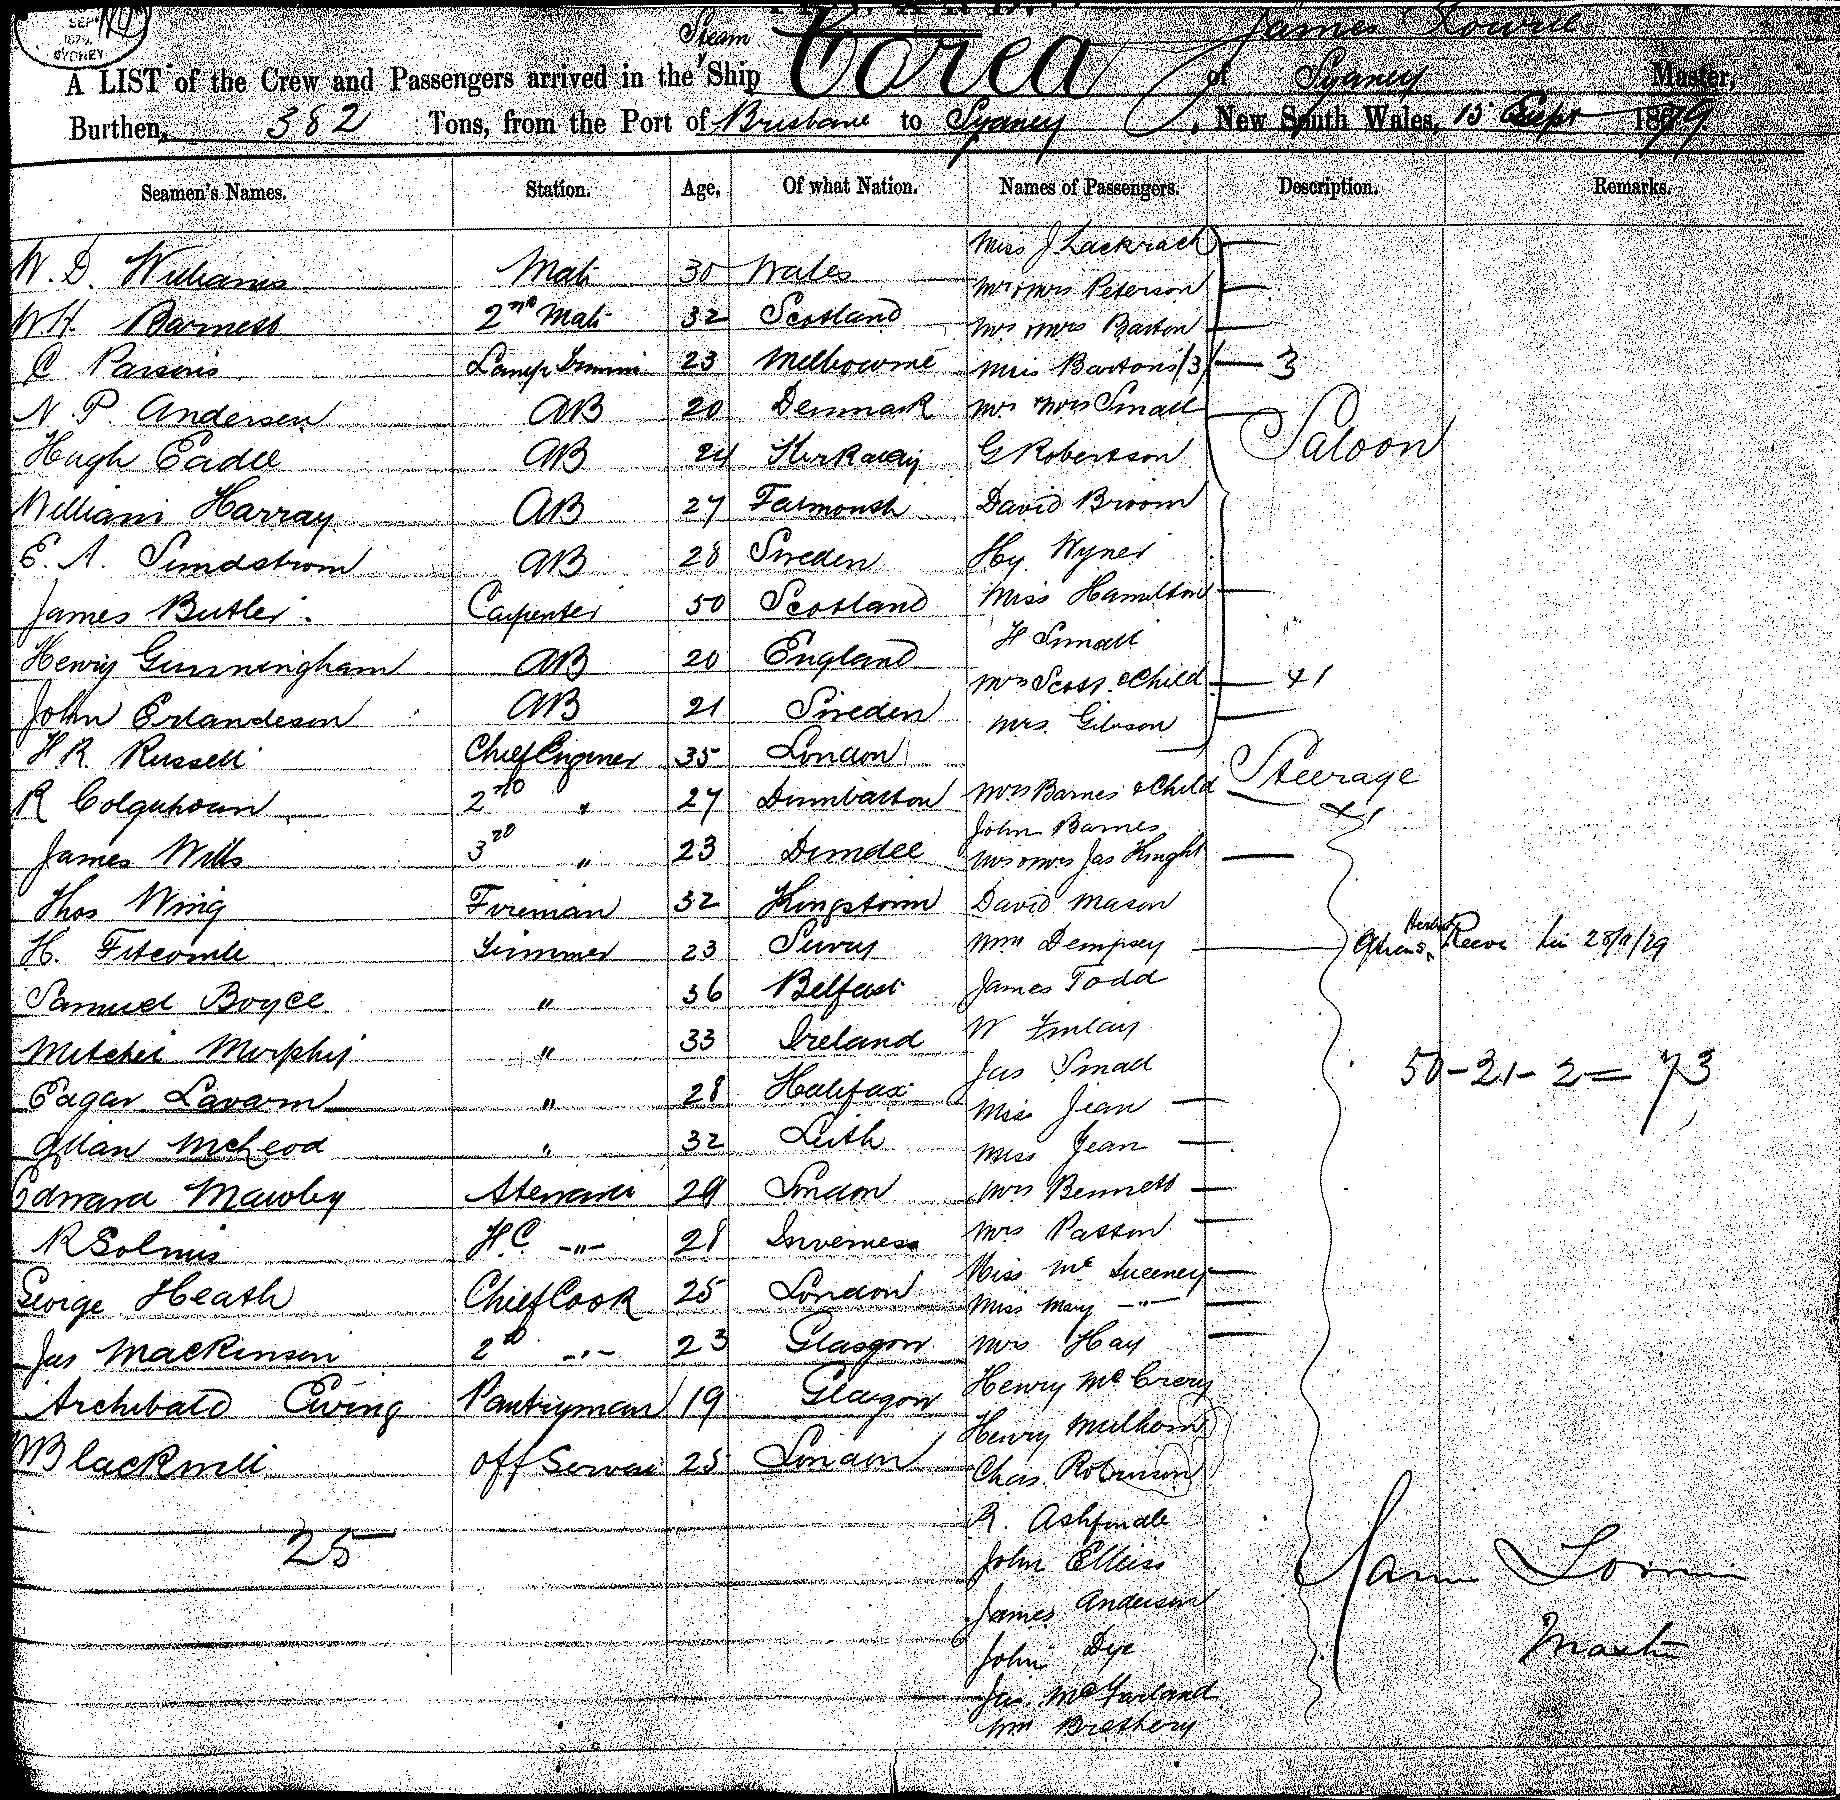 SEP
1879
SYDNEY
Steam James Lowrie
A LIST of the Crew and Passengers arrived in the Ship Corea of Sydney Master,
Burthen, 382 Tons, from the Port of Brisbane to Sydney, New South Wales, 15 Sept 1879
Seamen's Names. Station. Age, Of what Nation. Names of Passengers. Description. Remarks.
Miss J
W. D. Williams Mate 30 Wales
Mr & Mrs Peterson
W H. Barnett 2nd Mate 32 Scotland
Mr & Mrs Barton
C Parsons Lamp Trimmer 23 Melbourne Miss Bartons (3) 3
N. P. Andersen AB 20 Denmark Mr & Mrs Small
Saloon
Hugh Eadie AB 24 Kirkcaldy G Robertson
William Harray AB 27 Falmouth David Broom
E. A. Sundstrom AB 28 Sweden Hy. Wyner
James Butler. Carpenter 50 Scotland Miss Hamilton
H Small
Henry Gunningham AB 20 England
Mrs Scott & Child + 1
John Erlandeson AB 21 Sweden Mrs. Gibson
H. R. Russell Chief Engineer 35 London
Steerage
R Colquhoun 2nd " 27 Dumbarton Mrs Barnes & Child + 1
John Barnes
James Wills 3rd " 23 Dundee Mr & Mrs Jas Knight
Thos Wing Fireman 32 Kingstown David Mason
H. Fitcomb Trimmer 23 Surry Wm Dempsey Reeve 28/11/79
Samuel Boyce " 36 Belfast James Todd
W Finlay
Mitchel Morphy " 33 Ireland
Jas Small 50 - 21 - 2 = 73
Edgar Lavarn " 28 Halifax Miss Jean
Allan McLeod " 32 Leith Miss Jean
Edward Mawby Steward 29 London Mrs Bennett
R Solmis H.C. -"- 28 Inverness Mrs Patton
Miss McSweeney
George Heath Chief Cook 25 London Miss Mary -"-
Jas Mackinson 2nd -"- 23 Glasgow Mrs Hay
Archibald Ewing Pantryman 19 Glasgow Henry McCrery
Henry Mulhorn
W Blackwell Off Servant 25 London Chas. Robinson
R. Ashfindle
25 John Elleiss
James Lowrie
James Anderson
John Dye Master
Jas. McFarland
Wm Brethery